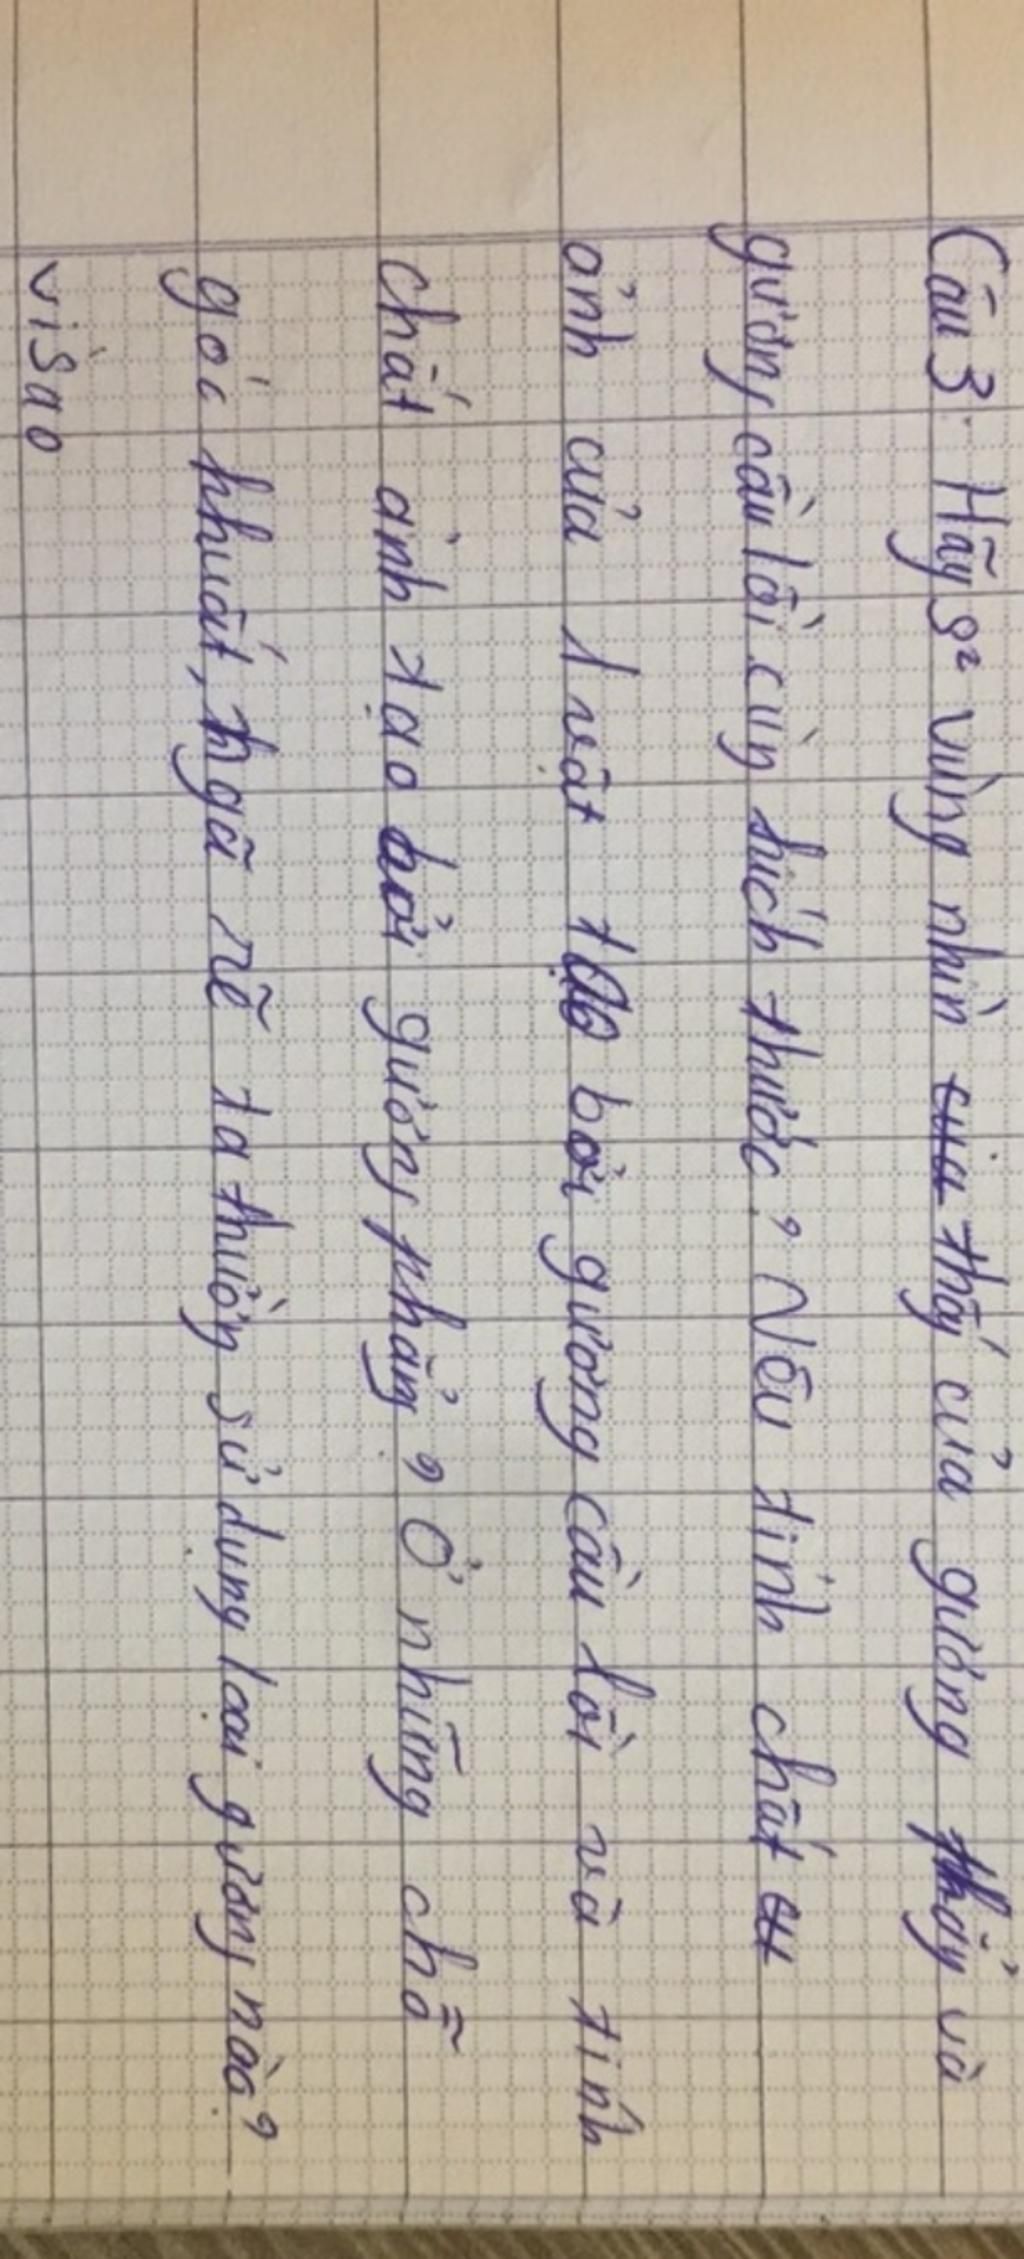 Câu 3: Hãy s² vùng nhìn thấy của gương phẳng và
gương cầu lồi cùng kích thước? Nêu tính chất
ảnh của 1 vật tạo bởi gương cầu lồi và tính
chất ảnh tạo bởi gương phẳng? Ở những chỗ
góc khuất, ngã rẽ ta thường sử dụng loại gương nào?
vì sao